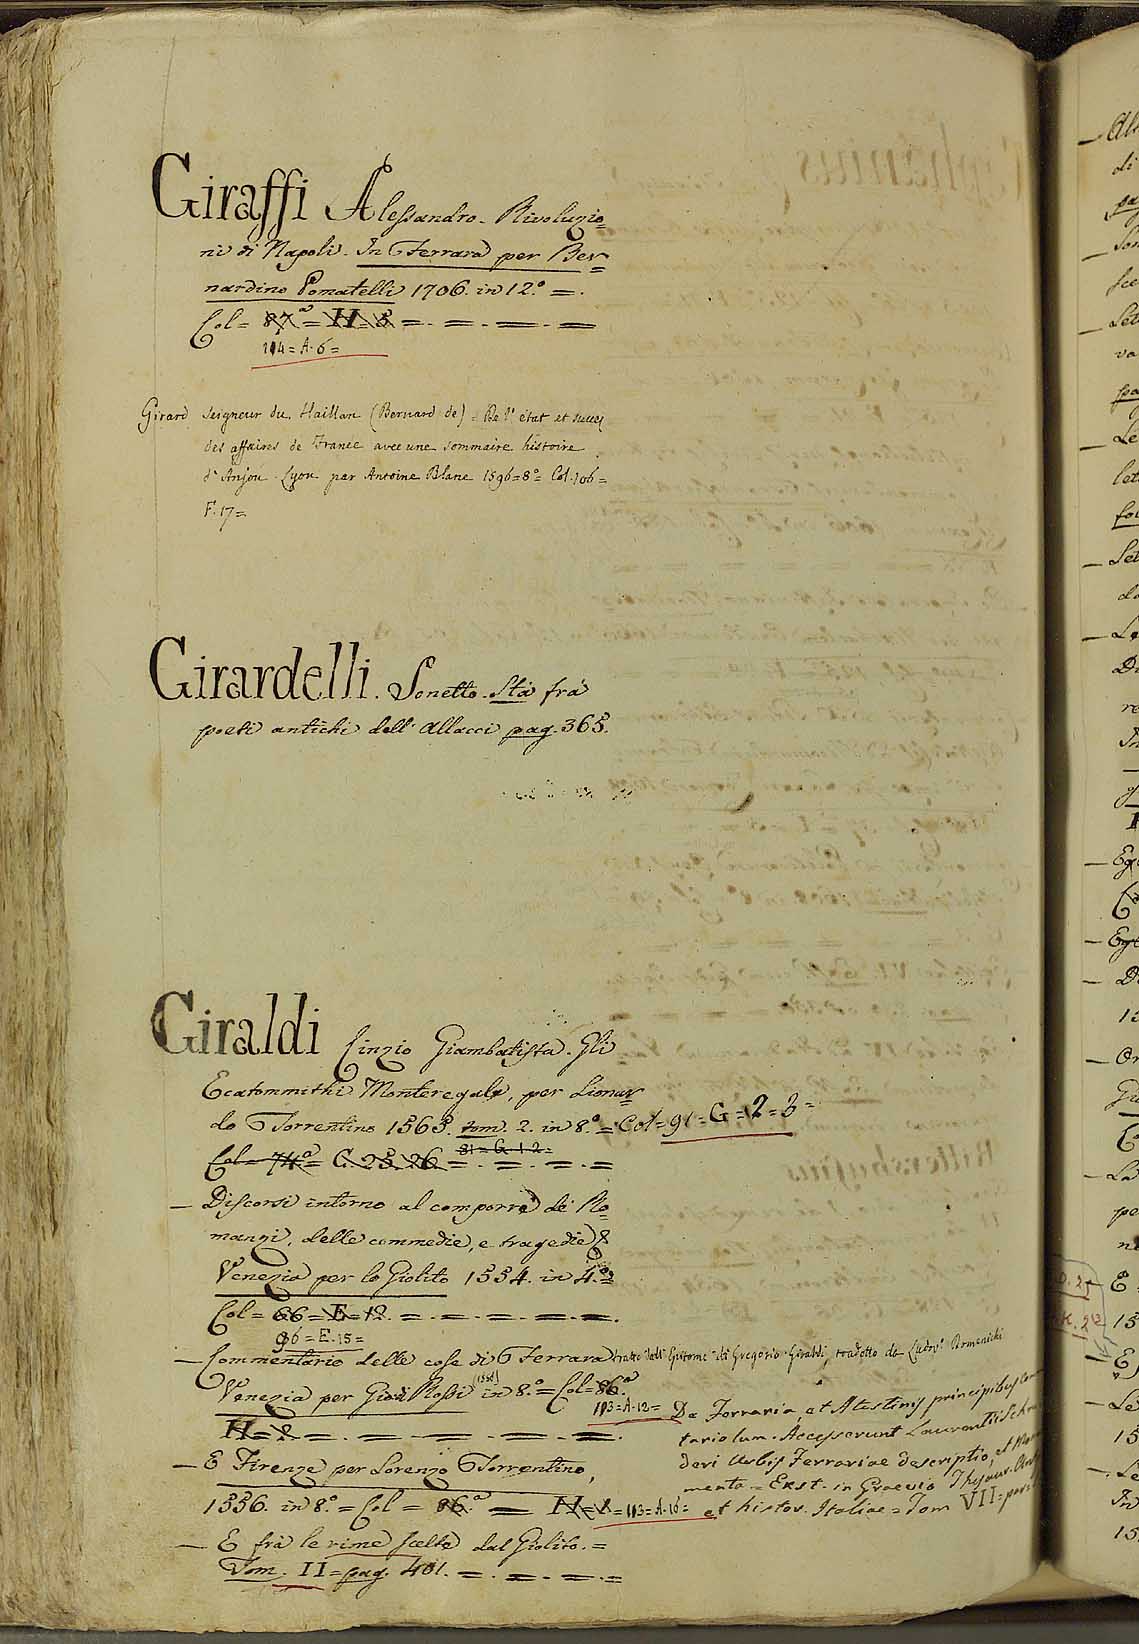 Giraffi Alessandro. Rivoluzio=
ni di Napoli. In Ferrara per Ber=
nardino Pomatelli 1706. in 12.° =.
Col= 87.ª = H= 3 =. =. =. =
114= A. 6=
Girard Seigneur du Haillan (Bernard de) = De l' état et succes
des affaires de France avec une sommaire histoire
d' Anjou. Lyon par Antoine Blanc 1596= 8.° = Col. 106=
F. 17=
Girardelli. Sonetto. Stà frà
poeti antichi dell' Allacci pag. 365.
Giraldi Cinzio Giambatista. Gli
Ecatommithi Monteregale, per Lionar=
do Torrentino 1565. tom. 2. in 8.° = Col= 91= G= 12= 3=
91= G. 1. 2=
Col= 74.ª = C. 25. 26 =. =. =. =
— Discorsi intorno al comporre de' Ro=
manzi, delle commedie, e tragedie &
Venezia per lo Giolito 1554. in 4.°
Col= 66= E= 12 =. =. =. =.
96= E. 15=
— Commentario delle cose di Ferrara tratto dall' Epitome di Gregorio Giraldi, tradotto da Ludov.° Domenichi
Venezia per Gio: di Rossi (1556) in 8.° = Col= 86.ª
113= A. 12=
H= 2 =. =. =. =. =.
De Ferraria, et Atestinis principibus
tariolum. Accesserunt Laurentii
deri Urbis Ferrariae descriptio, et
menta = Exst. in Graevio Thesaur.
et histor. Italiae = Tom VII=
— E Firenze per Lorenzo Torrentino,
1556. in 8.° = Col= 86.ª = H= 8= 113= A. 16=
— E frà le rime scelte dal Giolito. =
Tom. II= pag. 401. =. =. =. =